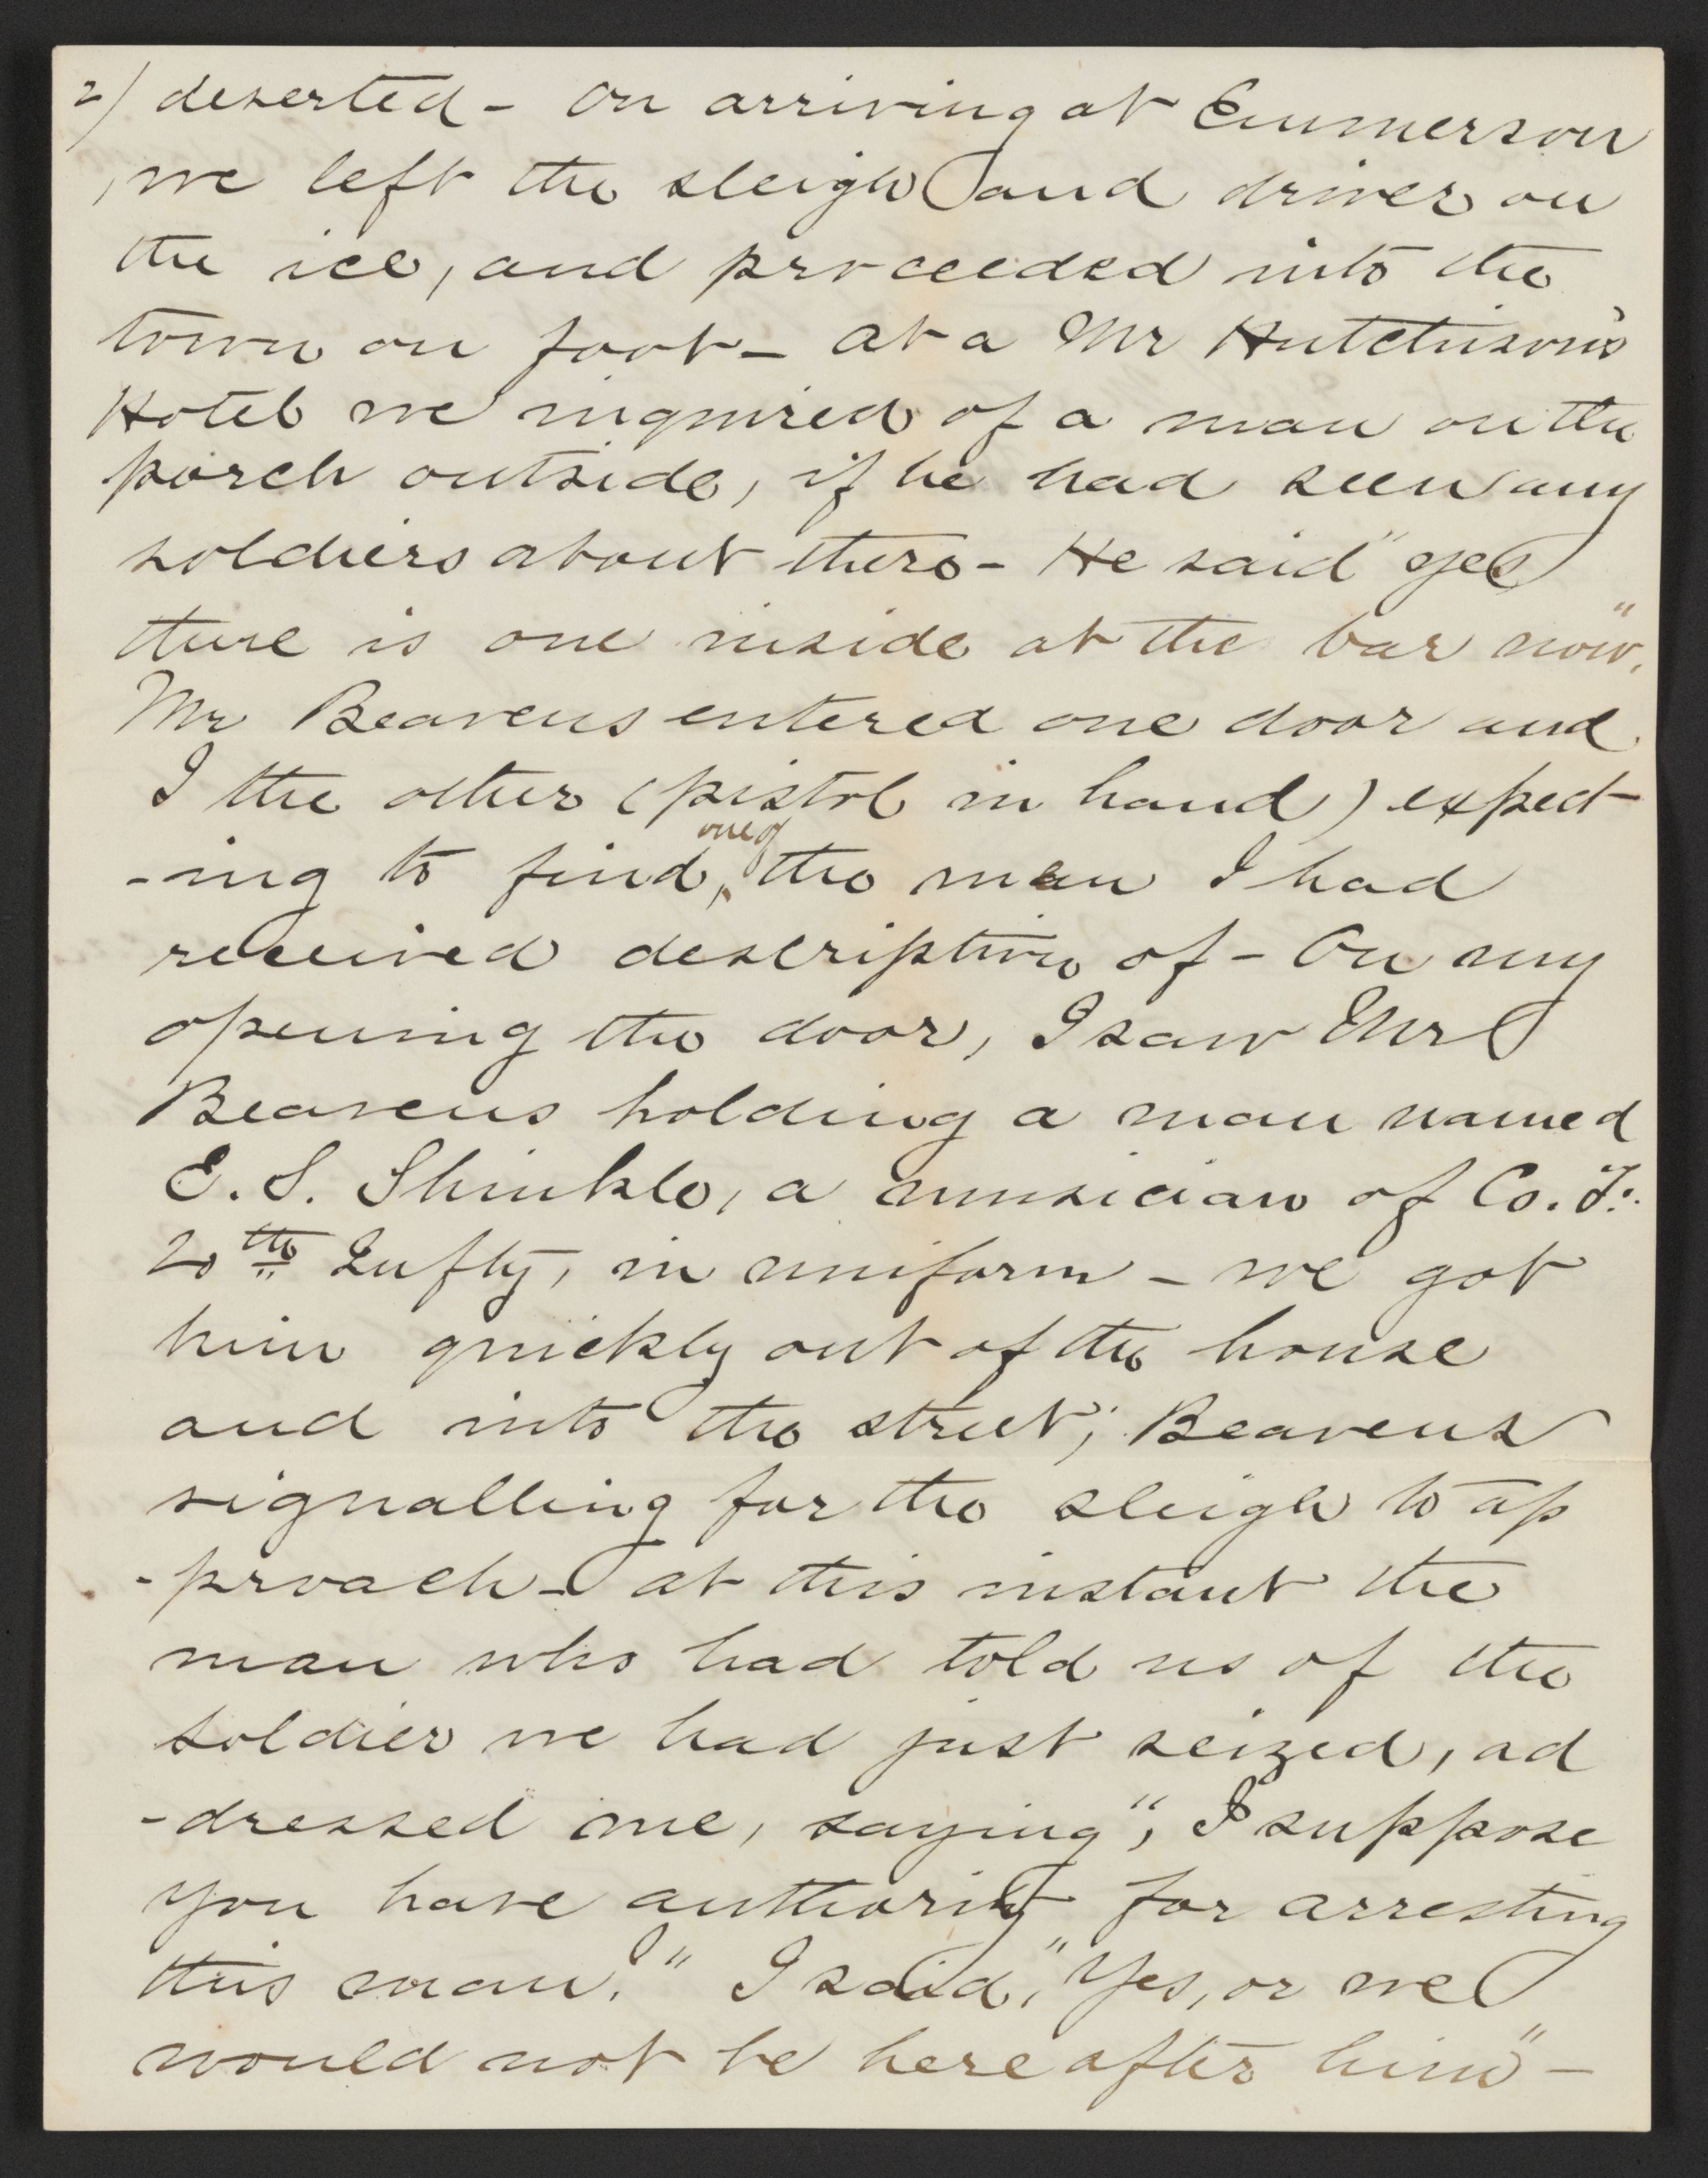 2) deserted - On arriving at Emmerson
we left the sleigh and driver on
the ice, and proceeded into the
town on foot - At a Mr Hutchison's
Hotel we inquired of a man on the
porch outside, if he had seen any
soldiers about there - He said "yes
there is one inside at the bar now".
Mr Beavens entered one door and
I the other (pistol in hand) expect-
-ing to find, one of the men I had
received description of - On my
opening the door, I saw Mr
Beavens holding a man named
E. S. Shinkle, a musician of Co. F.
20th Infty, in uniform - we got
him quickly out of the house
and into the street; Beavens
signalling for the sleigh to ap
-proach - at this instant the
man who had told us of the
soldier we had just seized, ad
-dressed me, saying", I suppose
you have authority for arresting
this man?" I said, "Yes, or we
would not be here after him" -